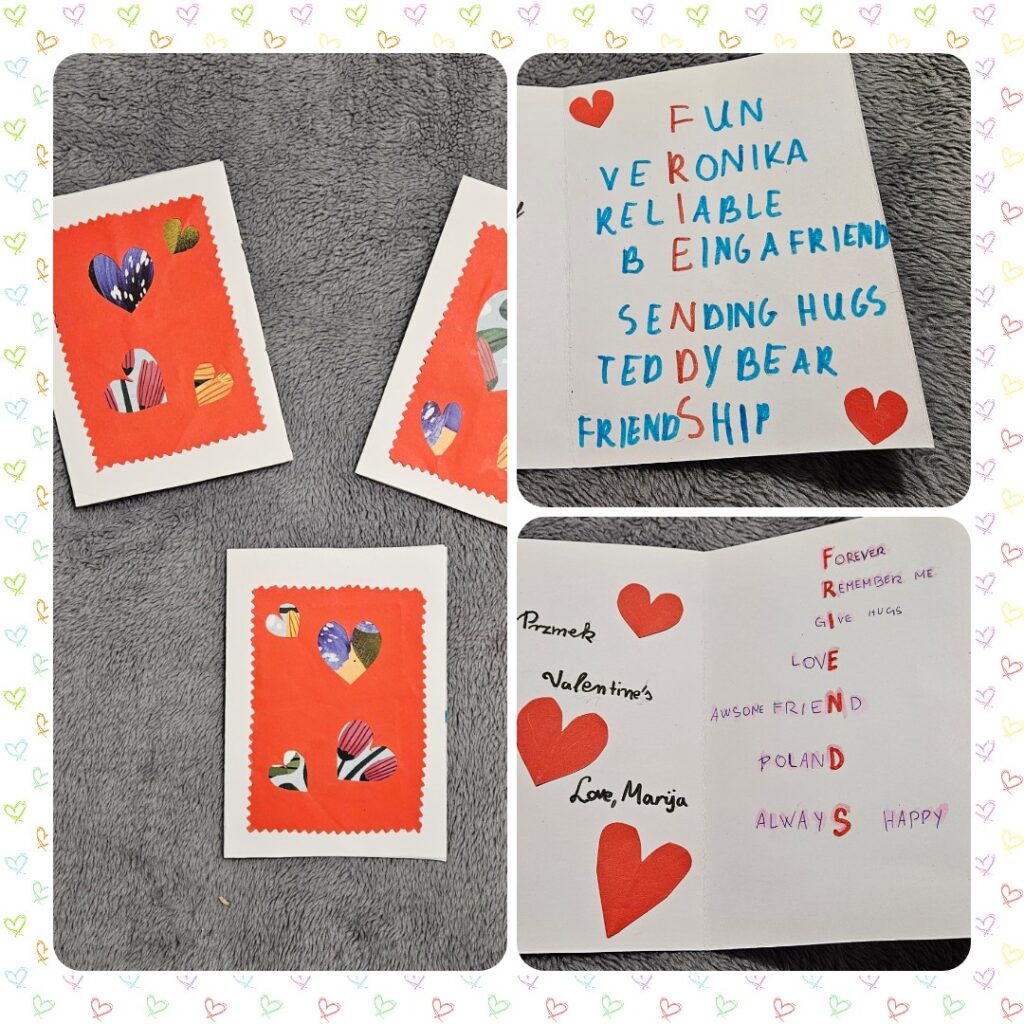 FUN
VERONIKA
RELIABLE
BEING A FRIEND
SENDING HUGS
TEDDY BEAR
FRIENDSHIP
Przmek
Valentine's
Love, Marija
FOREVER
REMEMBER ME
GIVE HUGS
LOVE
AWSONE FRIEND
POLAND
ALWAYS HAPPY